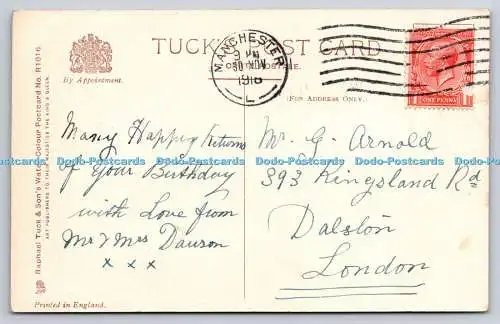 TUCK'S POST CARD
By Appointment.
MANCHESTER
9 PM
30 NOV
1918
L
(FOR ADDRESS ONLY.)
ONE PENNY
Many Happy Returns
of your Birthday
with Love from
Mr & Mrs Dawson
x x x
Mr. G. Arnold
393 Kingsland Rd
Dalston
London
Dodo-Postcards Dodo-Postcards Dodo-Postcards Dodo-Postcards Dodo-Postcards
Raphael Tuck & Son's Water Colour Postcard No. R1016.
ART PUBLISHERS TO THEIR MAJESTIES THE KING & QUEEN.
Printed in England.